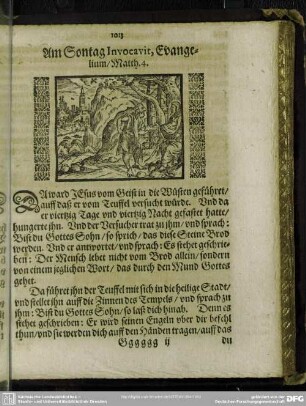 1013
Am Sontag Invocavit, Evange-
lium/Matth. 4.
DA ward JEsus vom Geist in die Wüsten geführet/
auff daß er vom Teuffel versucht würde. Und da
er viertzig Tage und viertzig Nacht gefastet hatte/
hungerte ihn. Und der Versucher trat zu ihm/und sprach:
Bist du Gottes Sohn/so sprich/das diese Steine Brod
werden. Und er antwortet/und sprach: Es stehet geschrie-
ben: Der Mensch lebet nicht vom Brod allein/sondern
von einem jeglichen Wort/das durch den Mund Gottes
gehet.
Da führet ihn der Teuffel mit sich in die heilige Stadt/
und stellet ihn auff die Zinnen des Tempels/und sprach zu
ihm: Bist du Gottes Sohn/so laß dich hinab. Denn es
stehet geschrieben: Er wird seinen Engeln uber dir befehl
thun/und sie werden dich auff den Händen tragen/auff das
Gggggg ij
du